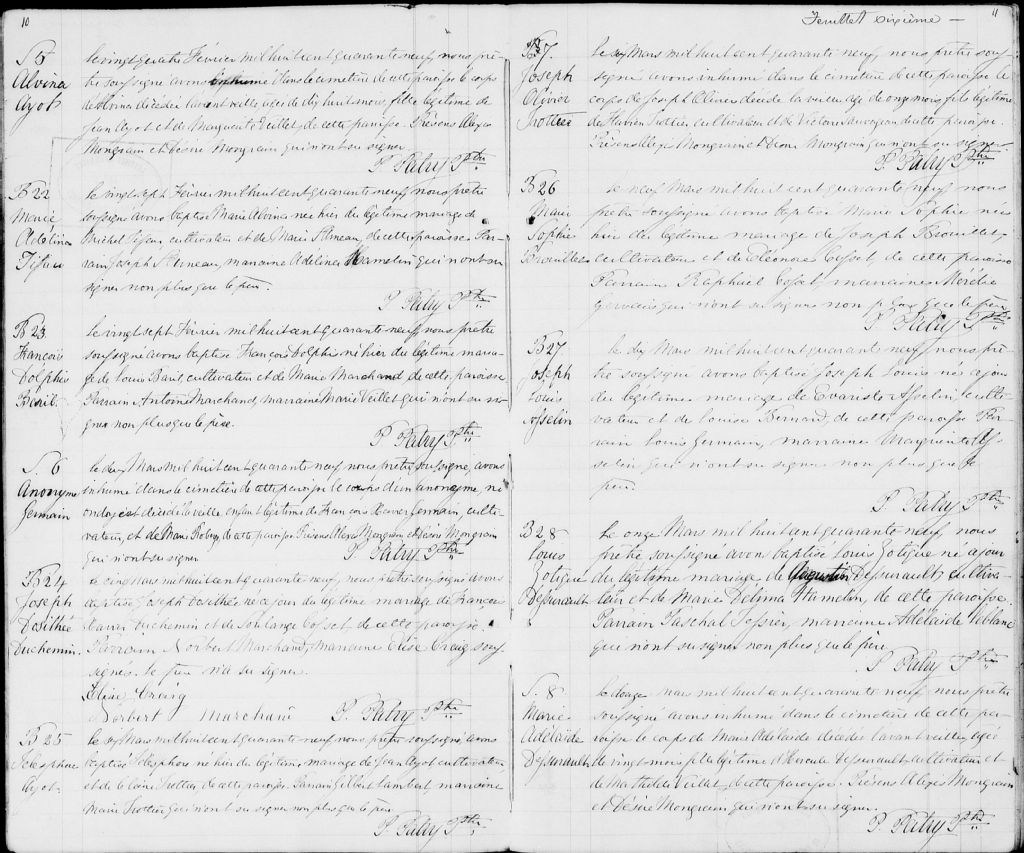 10
S5
Alvina
Ayot
Le vingt quatre Février mil huit cent quarante neuf, nous prê-
tre soussigné avons inhumé dans le cimetière de cette paroisse le corps
d'Alvina décédée l'avant veille agée de dix huit mois, fille légitime de
Jean Ayot et de Marguerite Veillet, de cette paroisse. Présens Alexis
Mongrain et Désiré Mongrain qui n'ont su signer.
P. Patry Ptre
B22
Marie
Adélina
Tifau
Le vingt sept Février mil huit cent quarante neuf nous prêtre
soussigné avons baptisé Marie Alvina née hier du légitime mariage de
Michel Tifau, cultivateur et de Marie de cette paroisse Par-
rain Joseph marraine Adelina Hamelin qui n'ont su
signer non plus que le père.
P. Patry Ptre
B23
François
Dolphis
Baril
Le vingt sept Février mil huit cent quarante neuf nous prêtre
soussigné avons baptisé François Dolphis né hier du légitime maria-
ge de Louis Baril, cultivateur et de Marie Marchand de cette paroisse
Parrain Antoine Marchand, marraine Marie Veillet qui n'ont su si-
gner non plus que le père.
P. Patry Ptre
S. 6
Anonyme
Germain
Le dix Mars mil huit cent quarante neuf nous prêtre soussigné, avons
inhumé dans le cimetière de cette paroisse le corps d'un anonyme, né
ondoyé et décédé la veille, enfant légitime de François Xavier Germain, culti-
vateur, et de Marie de cette paroisse Présens Alexis Mongrain et Désiré Mongrain
qui n'ont su signer
P. Patry Ptre
B24
Joseph
Dosithée
Duchemin.
Le cinq Mars mil huit cent quarante neuf, nous prêtre soussigné avons
baptisé Joseph Dosithée né ce jour du légitime mariage de François
Xavier Duchemin et de Soulange Cosset, de cette paroisse.
Parrain Norbert Marchand, marraine Elise Craig sous-
signés. Le père n'a su signer.
Elise Craig
Norbert Marchand P. Patry Ptre
B 25
Télesphore
Ayot.
Le six Mars mil huit cent quarante neuf, nous prêtre soussigné, avons
baptisé Télesphore né hier du légitime mariage de Jean Ayot cultivateur,
et de Claire Trottier, de cette paroisse. Parrain Gilbert Lambert, marraine
Marie Trottier qui n'ont su signer non plus que le père.
P. Patry Ptre
Feuillet sixième — 11
S. 7.
Joseph
Olivier
Trottier
Le six Mars mil huit cent quarante neuf, nous prêtre sous-
signé avons inhumé dans le cimetière de cette paroisse le
corps de Joseph Olivier décédé la veille agé de onze mois fils légitime
de Flavien Trottier, cultivateur et de Victoire Sauvageau de cette paroisse.
Présens Alexis Mongrain et Désiré Mongrain qui n'ont su signer
P. Patry Ptre
B26
Marie
Sophie
Brouillet
Le neuf Mars mil huit cent quarante neuf nous
prêtre soussigné avons baptisé Marie Sophie née
hier du légitime mariage de Joseph Brouillet,
cultivateur et de Eléonore Cosset de cette paroisse
Parrain Raphaël Cosset, marraine
Gervais qui n'ont su signer non plus que le père
P. Patry Ptre
B27.
Joseph
Louis
Asselin
Le dix Mars mil huit cent quarante neuf, nous prê-
tre soussigné avons baptisé Joseph Louis né ce jour
du légitime mariage de Evariste Asselin, culti-
vateur et de Louise Bernard, de cette paroisse Par-
rain Louis Germain, marraine Marguerite As-
selin qui n'ont su signer non plus que le
père.
P. Patry Ptre
B28
Louis
Zotique
Desurault
Le onze Mars mil huit cent quarante neuf, nous
prêtre soussigné avons baptisé Louis Zotique né ce jour
du légitime mariage de Augustin Desurault, cultiva-
teur et de Marie Délima Hamelin, de cette paroisse.
Parrain Paschal Tessier, marraine Adélaide Leblanc
qui n'ont su signer non plus que le père
P. Patry Ptre
S. 8
Marie
Adélaide
Desurault
Le douze Mars mil huit cent quarante neuf, nous prêtre
soussigné avons inhumé dans le cimetière de cette pa-
roisse le corps de Marie Adélaide décédée l'avant veille, agée
de vingt mois, fille légitime d'Hercule Desurault cultivateur et
de Mathilde Veillet, de cette paroisse. Présens Alexis Mongrain
et Désiré Mongrain qui n'ont su signer.
P. Patry Ptre